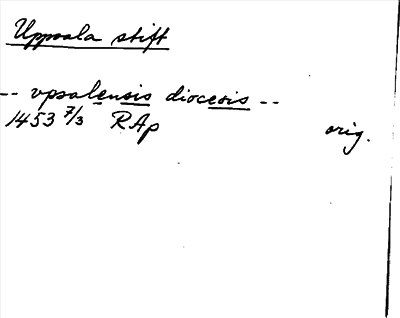 Uppsala stift
-- vpsalensis diocesis --
1453 7/3 RAp orig.